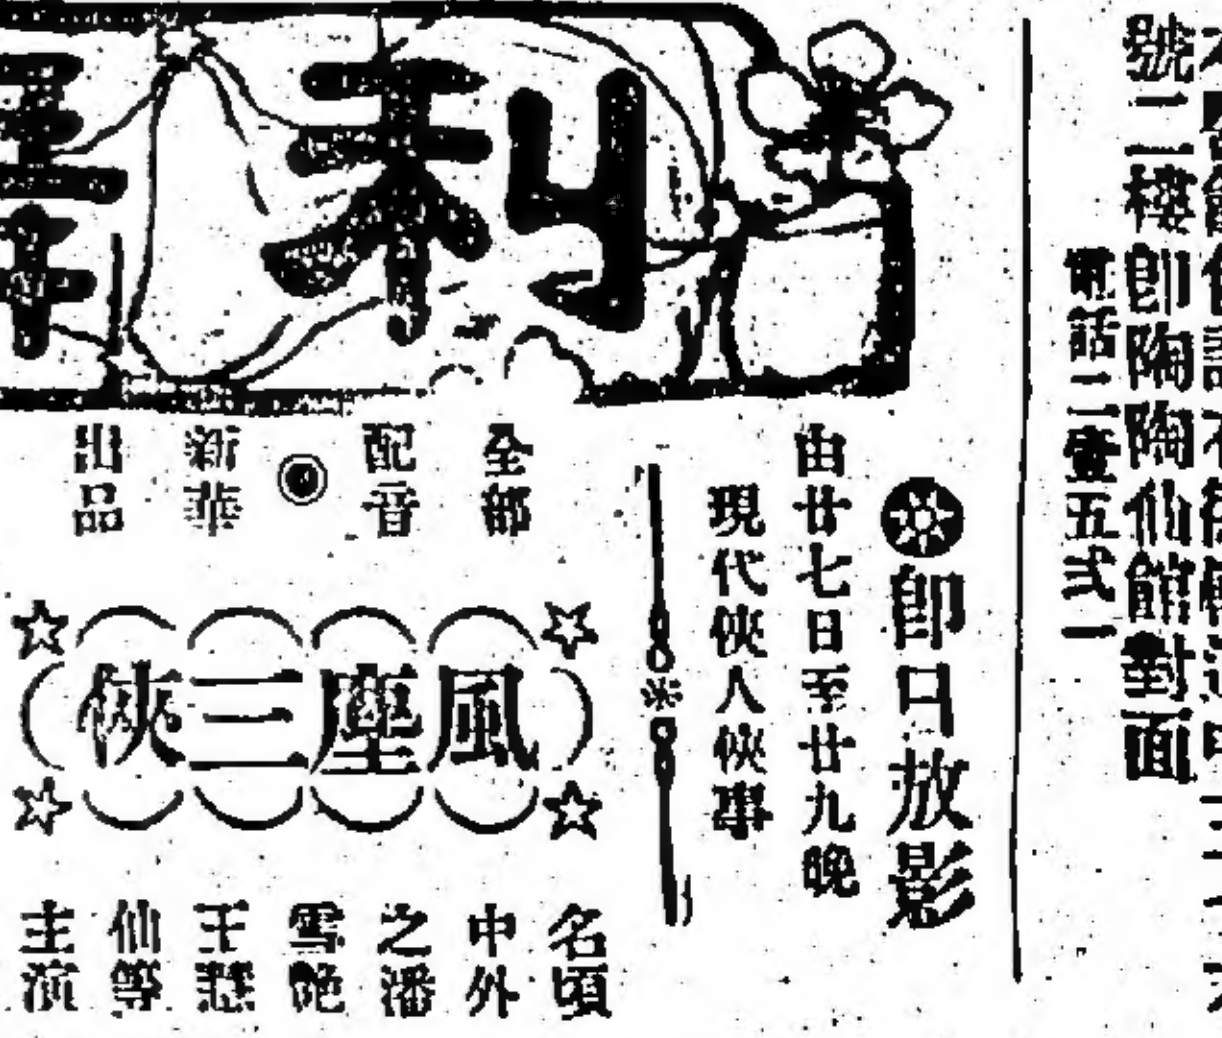 號二樓卽陶陶仙館對面
電話二壹五弍一
利
卽日放影
由廿七日至廿九晚
現代俠人俠事
全部
配音
新華
出品
風塵三俠
名傾
中外
之潘
雪艶
王慧
仙等
主演